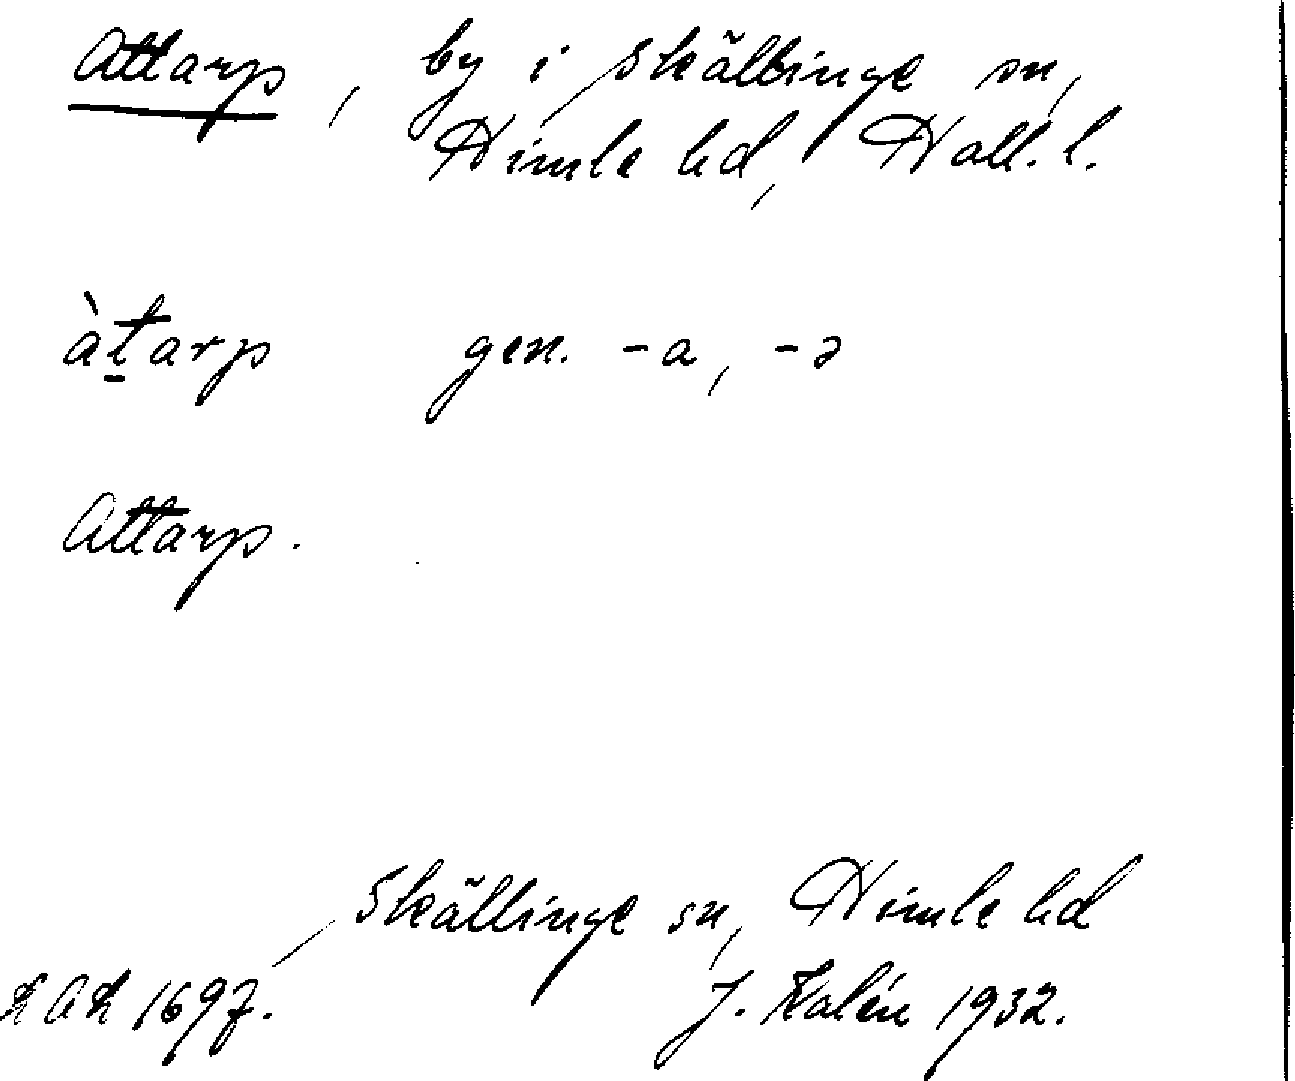 Attarp, by i Skällinge sn,
Himle hd, Hall. l.
àt̠arp gen. -a, -ə
Attarp.
Skällinge sn, Himle hd
LAL 1697. J. Kalén 1932.